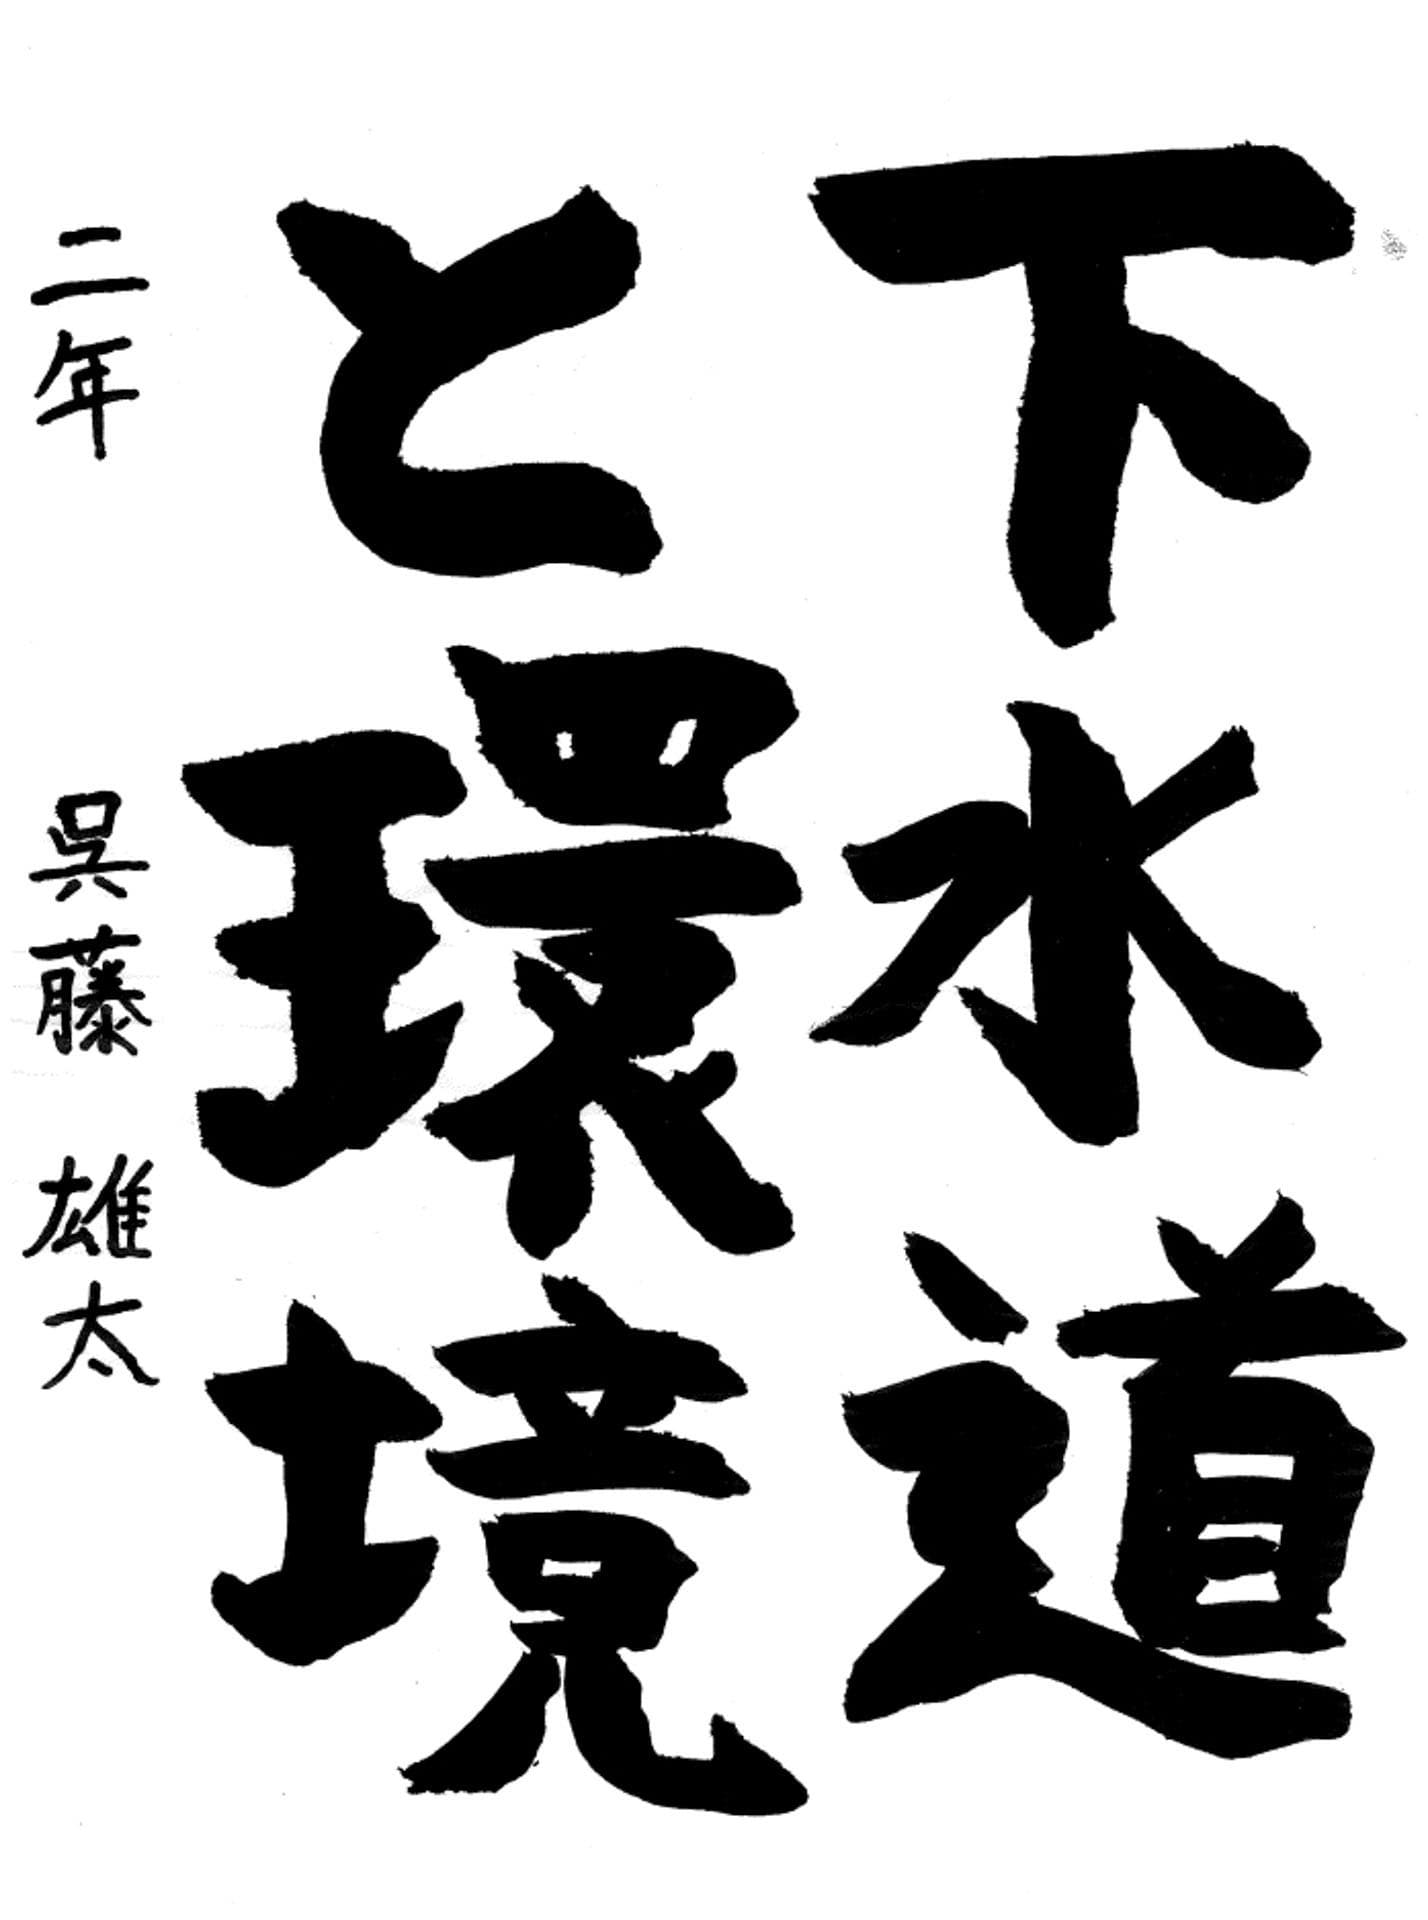 下水道
と環境
二年 呉藤 雄太